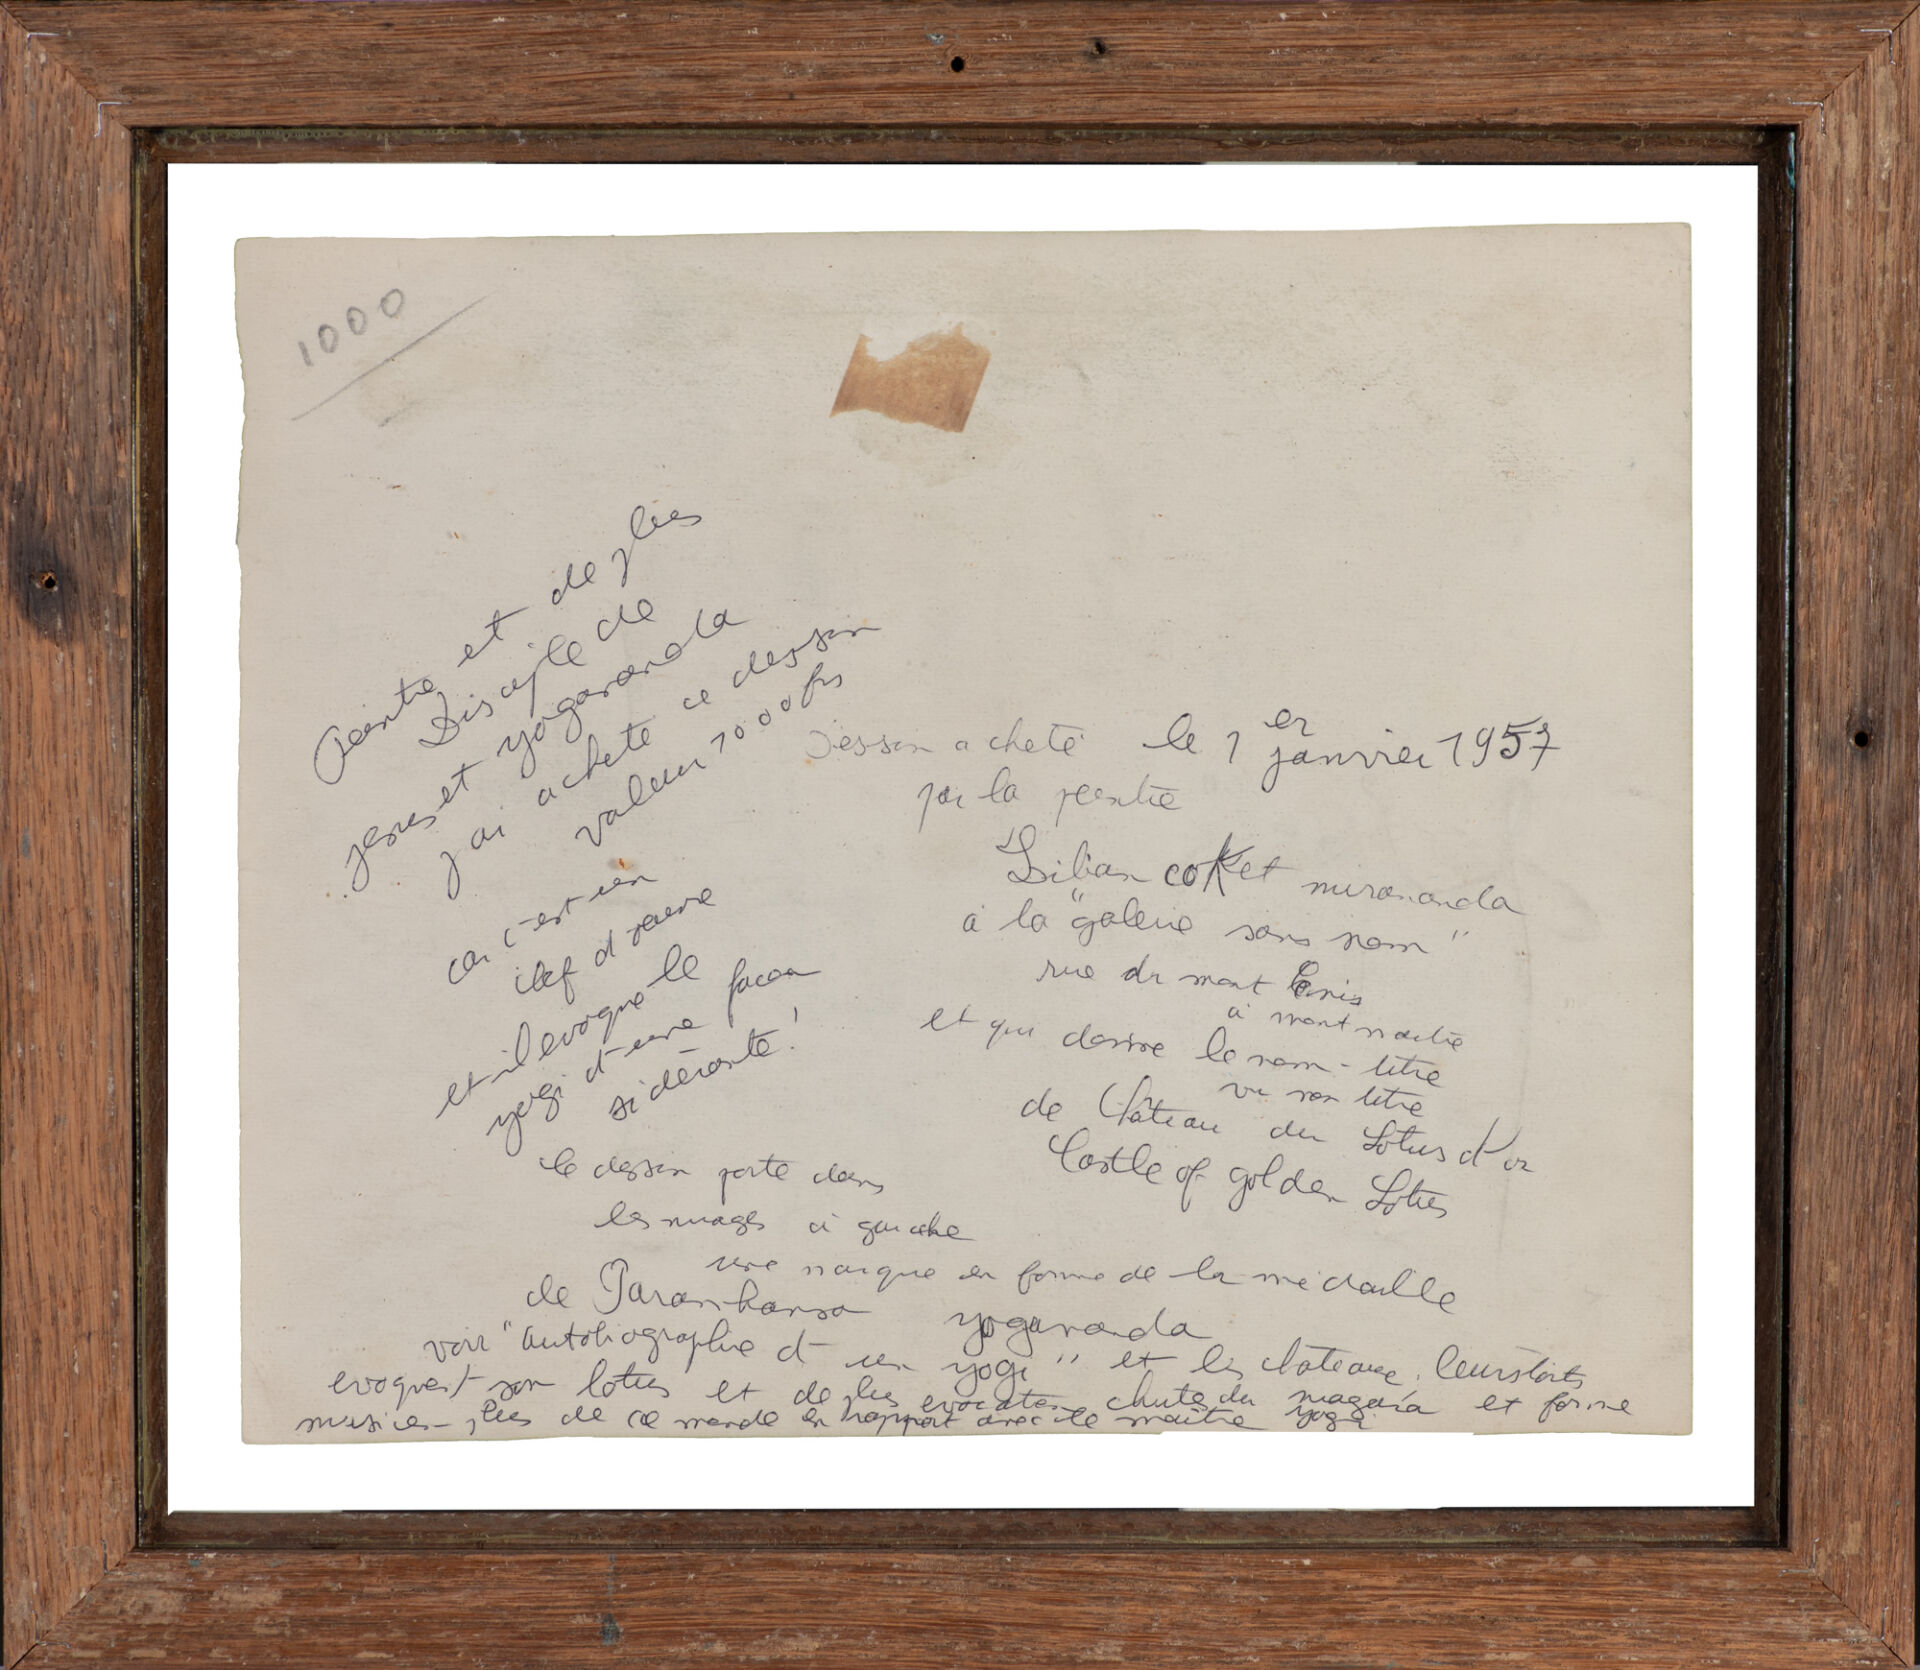 1000
Peintre et de plus
Disciple de
jesus et yogananda
j ai acheté ce dessin
valeur 1000 frs
car c'est un
chef d'œuvre
et il evoque le
yogi d'une facon
sidérante!
Dessin acheté le 1er janvier 1957
par la peintre
Lilian cokket nirananda
à la "galerie sans nom"
rue du mont Cenis
à montmartre
et qui donne le nom-titre
vu son titre
de Château du Lotus d'or
Castle of golden Lotus
le dessin porte dans
les nuages à gauche
une marque en forme de la médaille
de Paramhansa yogananda
voir "autobiographie d'un yogi" et les chateaux, leurs toits
evoquent son lotus et de plus chutes du niagara et forme
de ce monde en rapport avec le maître yogi